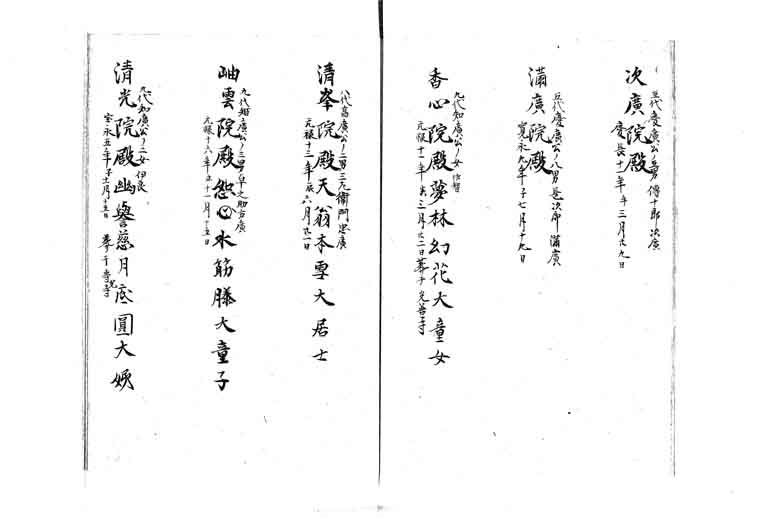 五代慶廣公ノ五男傳十郎次廣
次廣院殿
慶長十一年 三月廿九日
五代慶廣公ノ八男 次郎滿廣
滿廣院殿
寛永九年子七月十九日
九代知廣公ノ女
香心院殿夢林幻花大童女
元禄十一年 三月廿二日葬于光善寺
八代高廣公ノ二男三左衛門忠廣
清峯院殿天翁本雲大居士
元禄十三年辰六月廿一日
九代 廣公ノ三男 之助方廣
岫雲院殿 心水筋勝大童子
元禄十六年 十一月十五日
九代知廣公ノ二女 伊良
清光院殿幽譽慈月 圓大姉
宝永五年子十一月十五日 葬于 寺